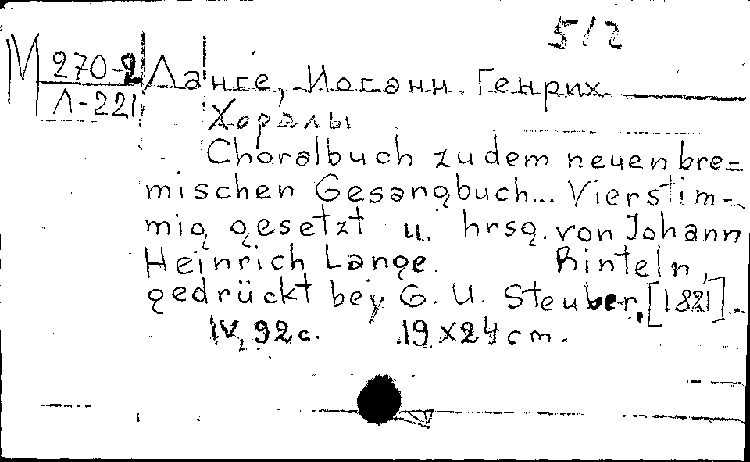 5/2
М 270-2
Л-221
Ланге, Иоганн Генрих
Хоралы
Choralbuch zu dem neuen bre=
mischen Gesangbuch... Vierstim-
mig gesetzt u. hrsg. von Johann
Heinrich Lange. Rinteln,
gedrückt bey G. U. Steuber, [1821].
IV, 92 с. 19x24 cm.